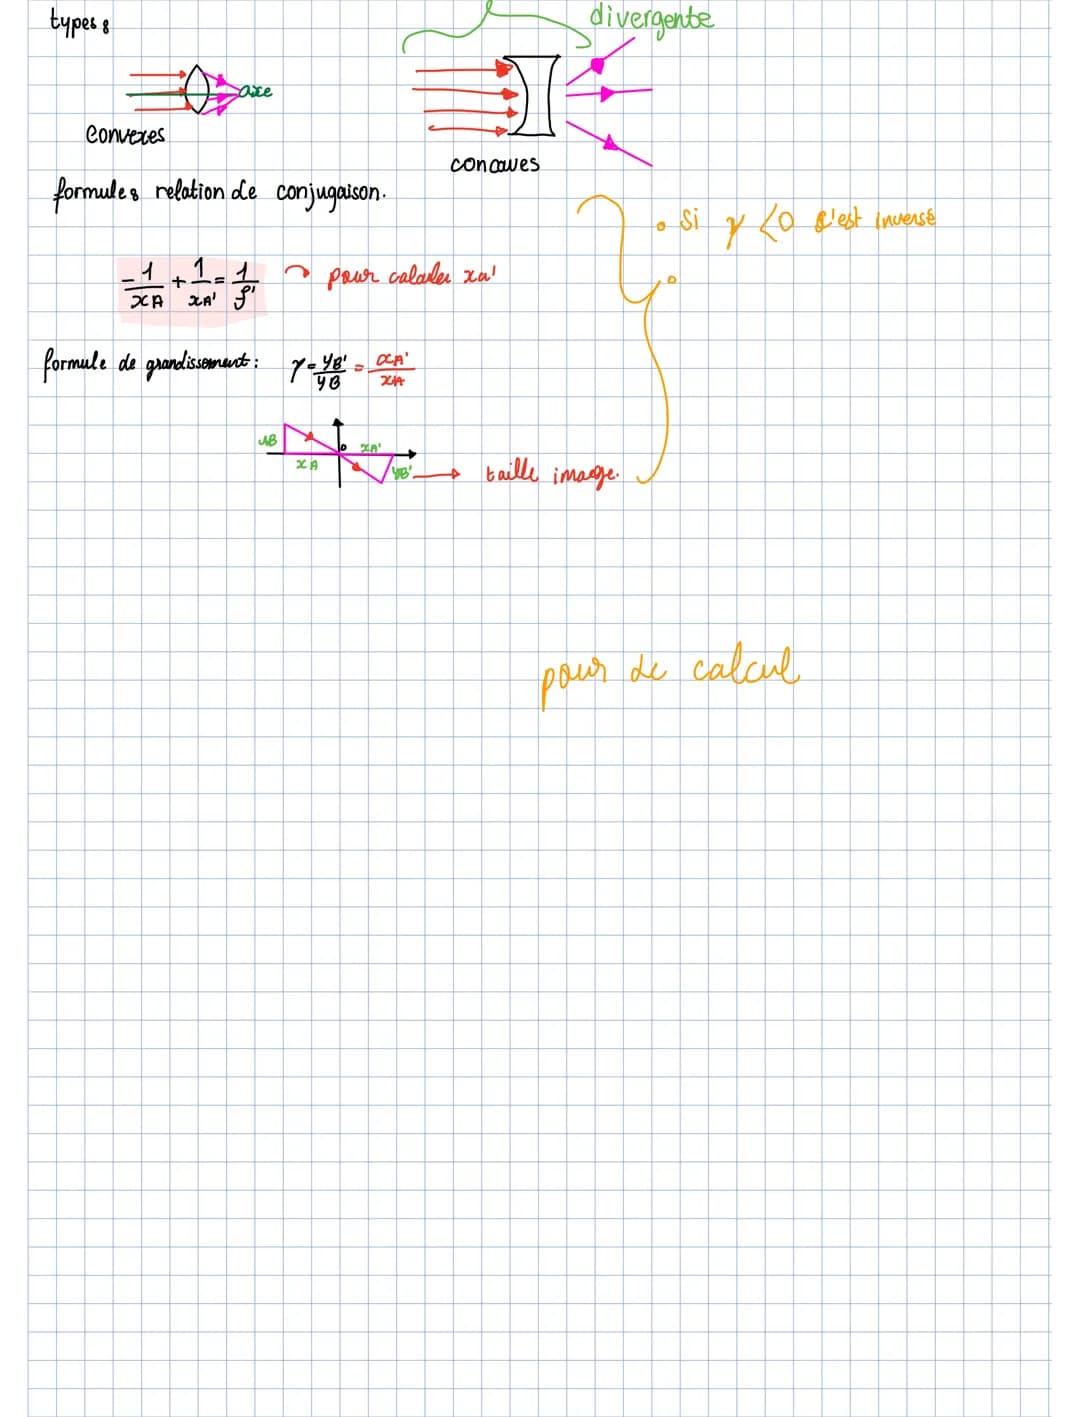 types :
divergente
axe
convexes
concaves
formules relation de conjugaison.
• si γ <0 c'est inversé
-1/xA + 1/xA' = 1/f' → pour calculer xa'
formule de grandissement : γ = yB'/yB = xA'/xA
yB
xA
o
xA'
yB' → taille image.
pour le calcul